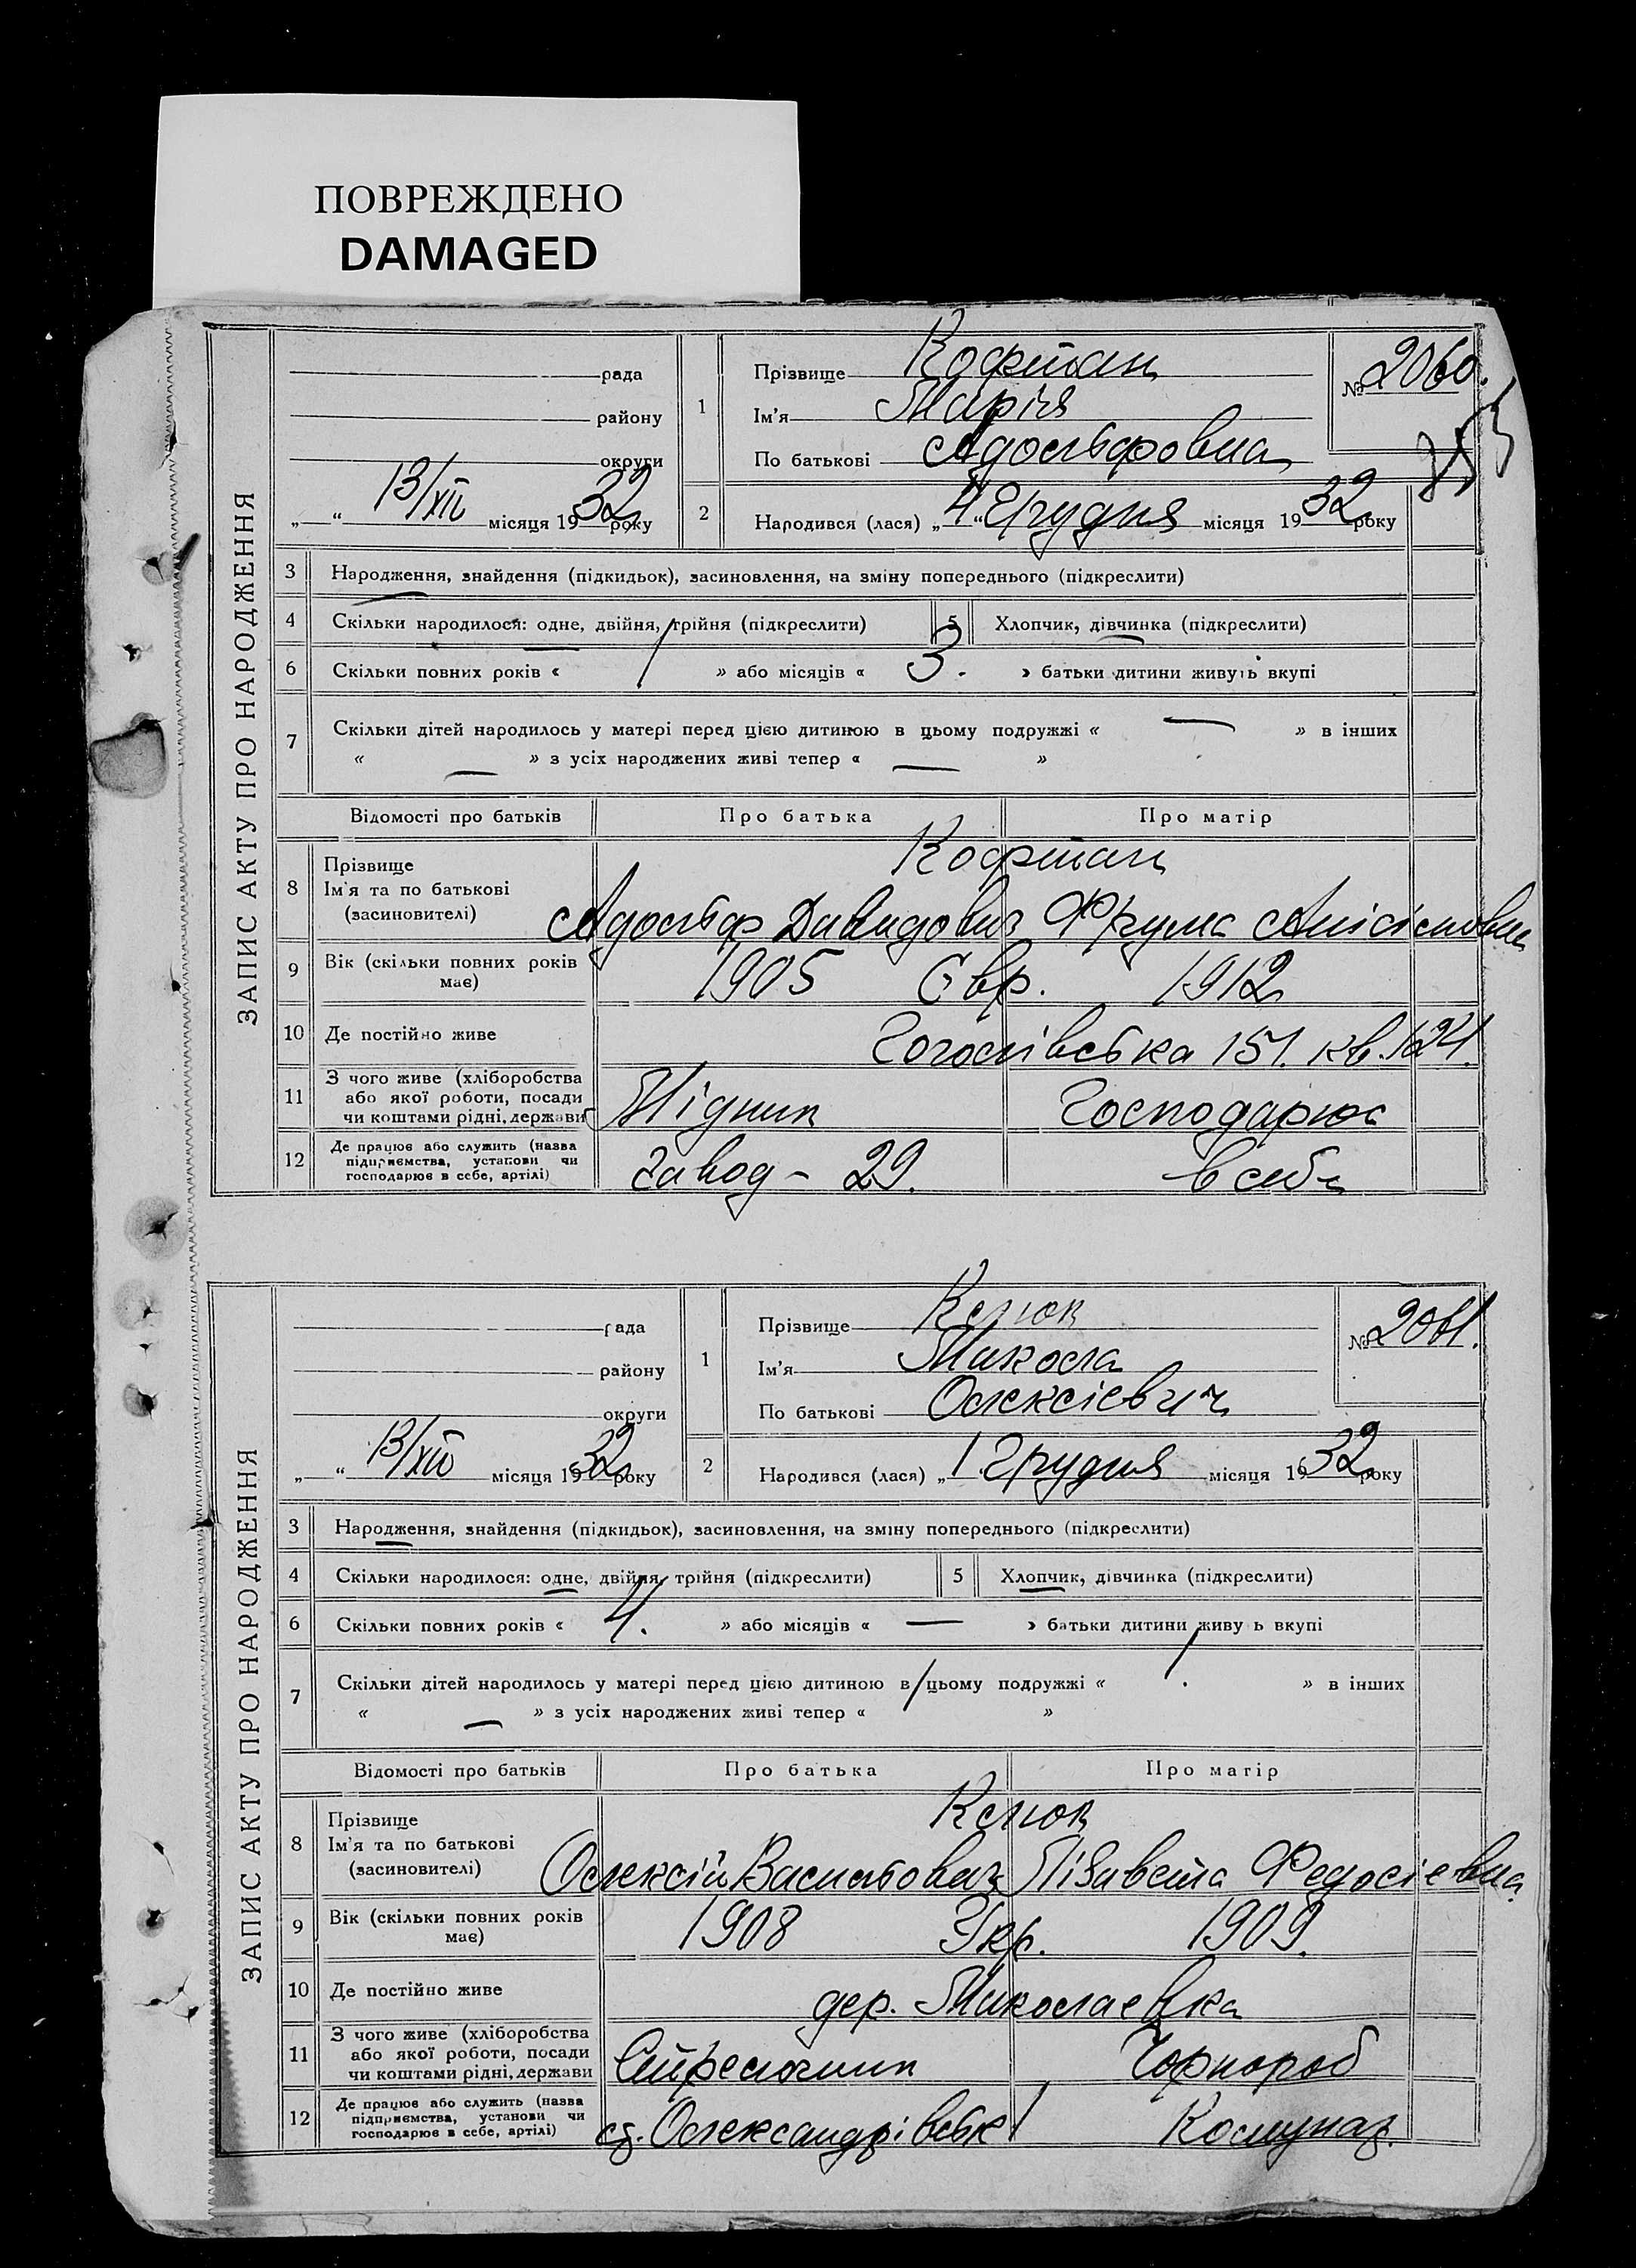 ПОВРЕЖДЕНО
DAMAGED
ЗАПИС АКТУ ПРО НАРОДЖЕННЯ
рада
району
округи
„ “ 13/XII місяця 1932 року
1
Прізвище Кофман
Ім'я Марія
По батькові Адольфовна
№ 2060.
2
Народився (лася) „4“ Грудня місяця 1932 року
3 Народження, знайдення (підкидьок), засиновлення, на зміну попереднього (підкреслити)
4 Скільки народилося: одне, двійня, трійня (підкреслити)
5 Хлопчик, дівчинка (підкреслити)
6 Скільки повних років « / » або місяців « 3. » батьки дитини живуть вкупі
7 Скільки дітей народилось у матері перед цією дитиною в цьому подружжі « — » в інших
« — » з усіх народжених живі тепер « — »
Відомості про батьків Про батька Про матір
8 Прізвище Кофман
Ім'я та по батькові
(засиновителі) Адольф Давидович Фрума
9 Вік (скільки повних років має) 1905 Євр. 1912
10 Де постійно живе Гоголівська 151. кв.
11 З чого живе (хліборобства
або якої роботи, посади
чи коштами рідні, держави Мідник Господарює
12 Де працює або служить (назва
підприємства, установи чи
господарює в себе, артілі) Завод – 29. в себе
ЗАПИС АКТУ ПРО НАРОДЖЕННЯ
рада
району
округи
„ “ 13/XII місяця 1932 року
1
Прізвище
Ім'я Микола
По батькові Олексієвич
№ 2061.
2
Народився (лася) „1 Грудня місяця 1932 року
3 Народження, знайдення (підкидьок), засиновлення, на зміну попереднього (підкреслити)
4 Скільки народилося: одне, двійня, трійня (підкреслити)
5 Хлопчик, дівчинка (підкреслити)
6 Скільки повних років « 4. » або місяців « — » батьки дитини живу ь вкупі
7 Скільки дітей народилось у матері перед цією дитиною в цьому подружжі « 1. » в інших
« — » з усіх народжених живі тепер « 1 »
Відомості про батьків Про батька Про матір
8 Прізвище
Ім'я та по батькові
(засиновителі) Олексій Васильович Лізавета Федосієвна
9 Вік (скільки повних років має) 1908 Укр. 1909.
10 Де постійно живе дер. Миколаевка
11 З чого живе (хліборобства
або якої роботи, посади
чи коштами рідні, держави Стрелочник Чорнороб
12 Де працює або служить (назва
підприємства, установи чи
господарює в себе, артілі) ст. Олександрівськ 1